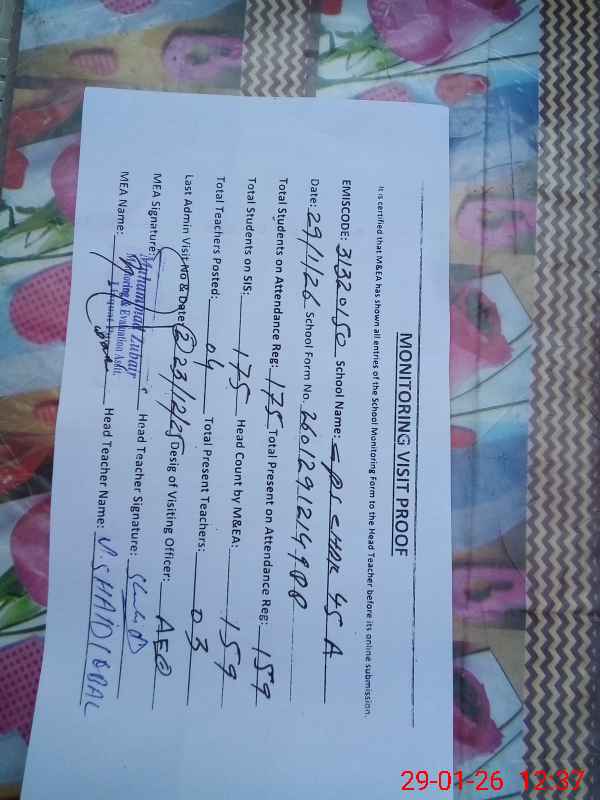 MONITORING VISIT PROOF
It is certified that M&EA has shown all entries of the School Monitoring Form to the Head Teacher before its online submission.
EMISCODE: 31320150 School Name: GPS CHAK 45 A
Date: 29/1/26 School Form No. 2601291214988
Total Students on Attendance Reg: 175 Total Present on Attendance Reg: 159
Total Students on SIS: 175 Head Count by M&EA: 159
Total Teachers Posted: 04 Total Present Teachers: 03
Last Admin Visit No & Date: (2) 23/12/25 Desig of Visiting Officer: AEO
MEA Signature: Head Teacher Signature:
Muhammad Zubair
Monitoring & Evaluation Asstt.
MEA Name: Head Teacher Name:
29-01-26 12:37